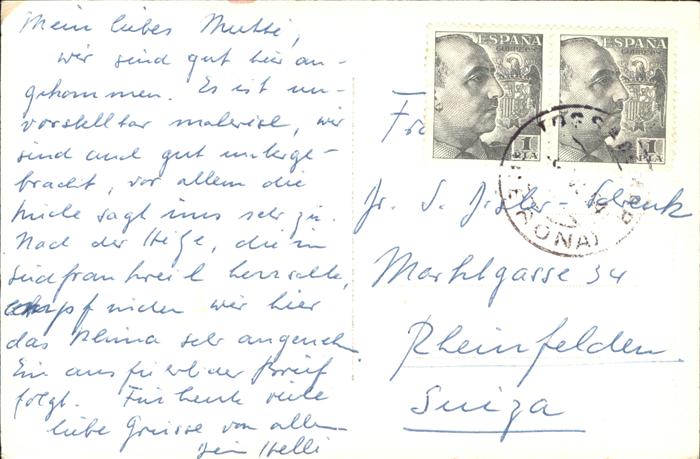 Mein liebes Mutti,
wir sind gut hier an-
gekommen. Es ist un-
vorstellbar malerisch, wir
sind auch gut unterge-
bracht, vor allem die
Küche sagt uns sehr zu.
Nach der Hitze, die in
Südfrankreich herrschte,
empfinden wir hier
das Klima sehr angenehm
Ein ausführlicher Brief
folgt. Für heute viele
liebe Grüsse von allen
Dein Helli
ESPAÑA
CORREOS
1
PTA
ESPAÑA
CORREOS
1
PTA
TOSSA DE MAR
(GERONA)
Dr. S. Schenk
Marktgasse 34
Rheinfelden
Suiza